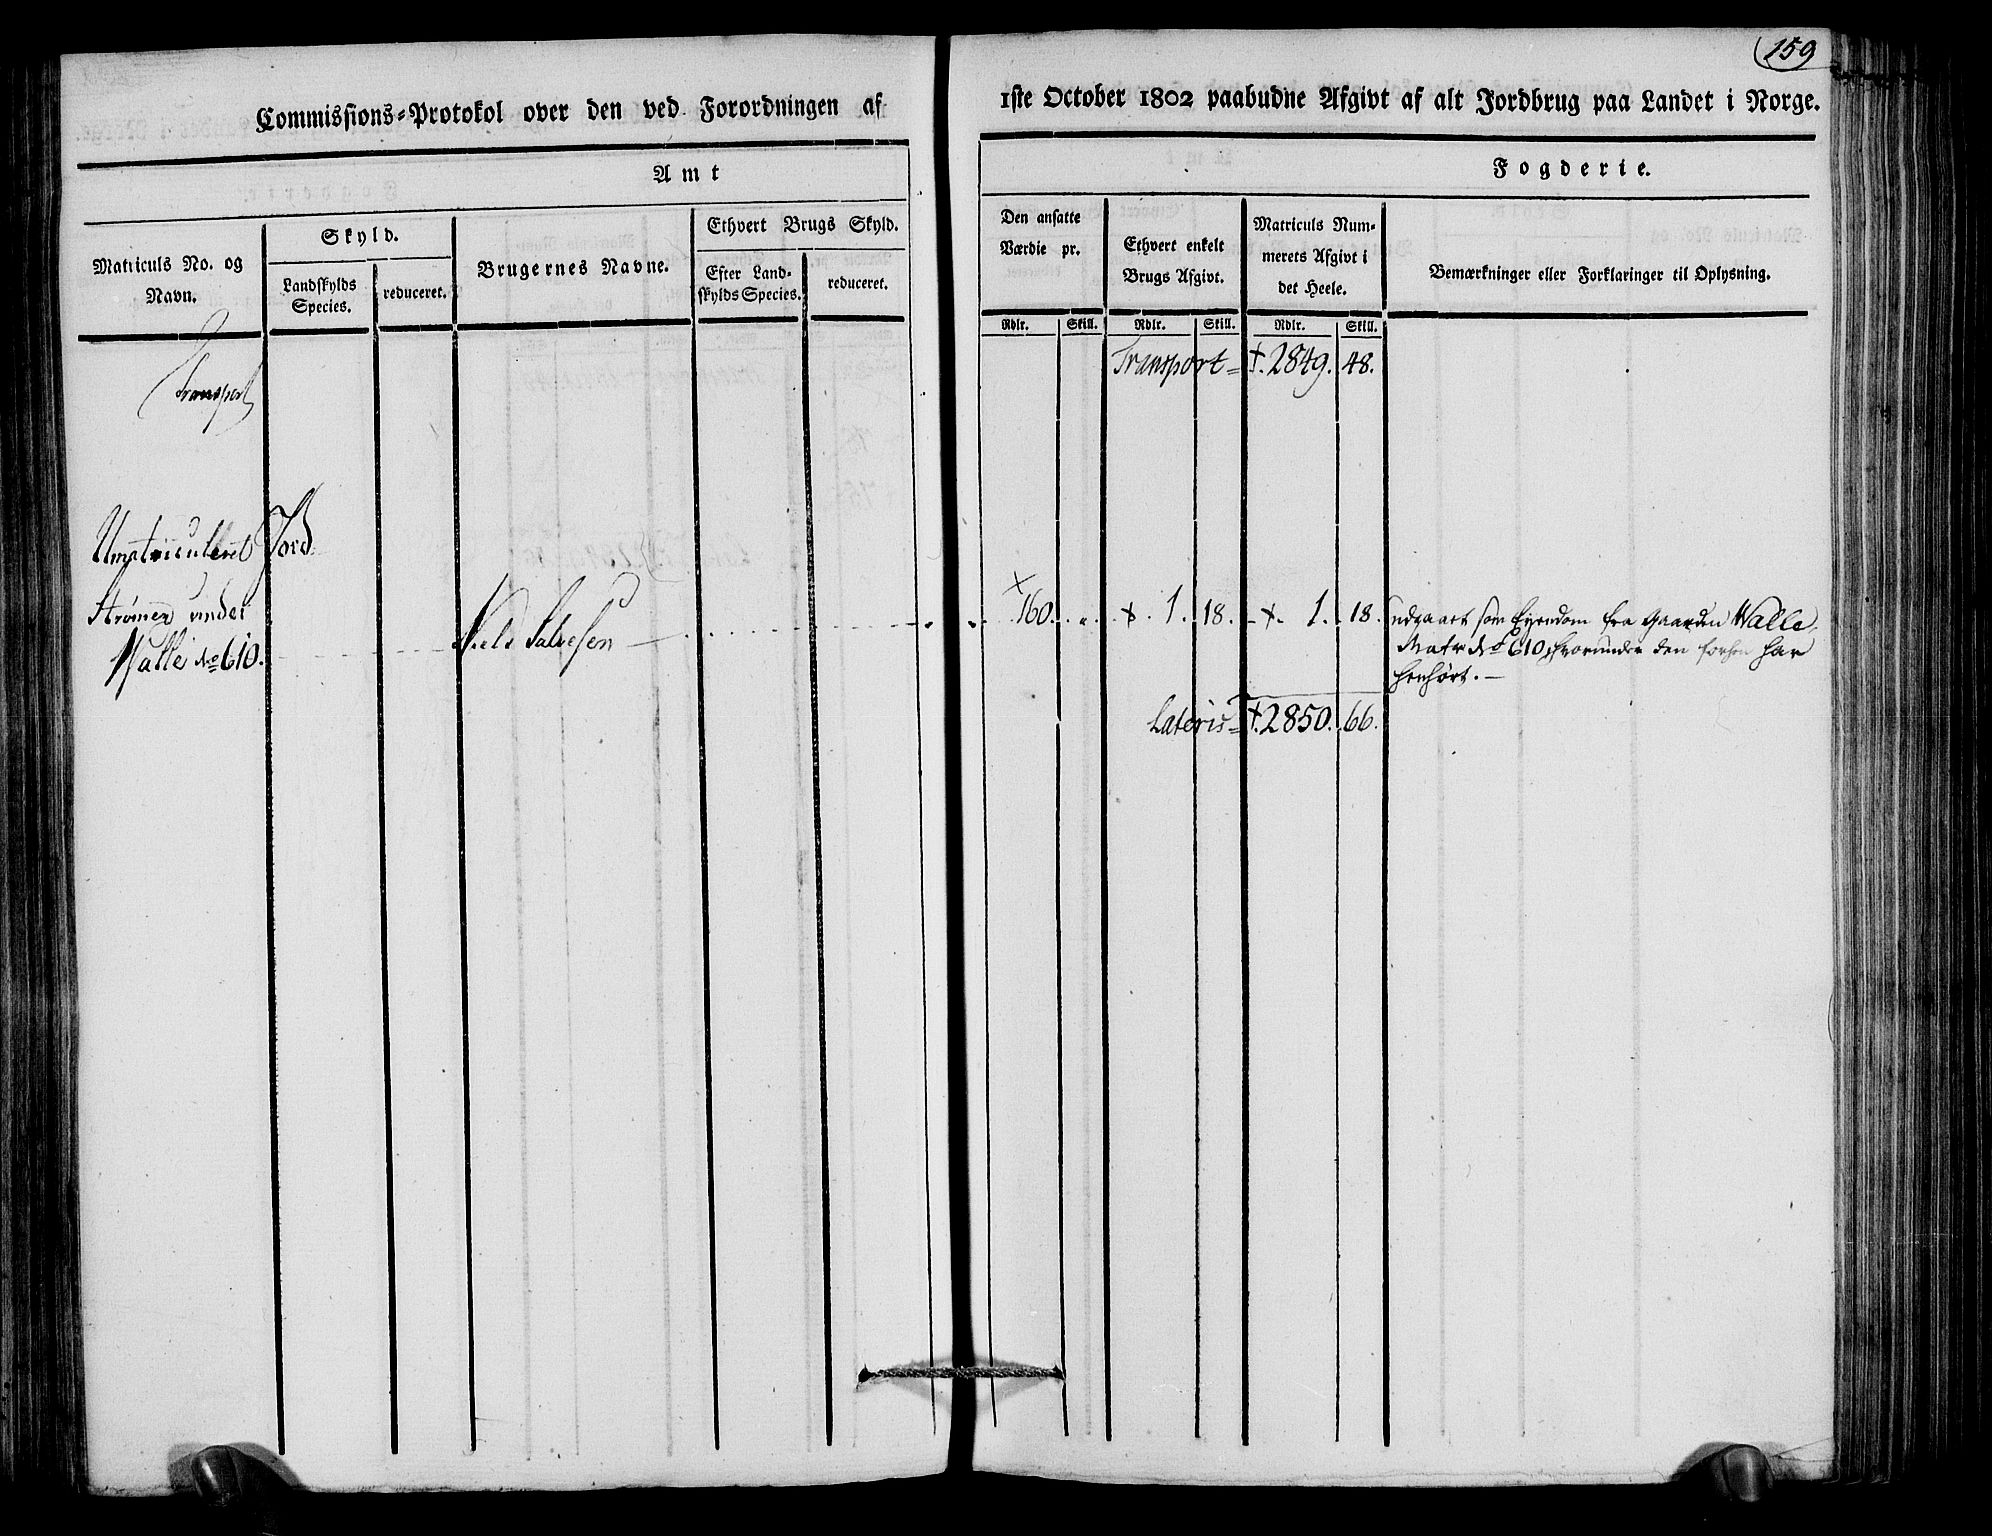 159
Commissions-Protokol over den ved Forordningen af
1ste October 1802 paabudne Afgivt af alt Jordbrug paa Landet i Norge.
Amt
Fogderie.
Matriculs No. og
Navn.
Skyld.
Landskylds
Species.
reduceret.
Brugernes Navne.
Ethvert Brugs Skyld.
Efter Land-
skylds Species.
reduceret.
Den ansatte
Værdie pr.
Ethvert enkelt
Brugs Afgivt.
Matriculs Num-
merets Afgivt i
det Heele.
Bemærkninger eller Forklaringer til Oplysning.
Rdlr. Skill. Rdlr. Skill. Rdlr. Skill.
Transport
Transport = 2849. 48.
Umatriculeret Jord
Strømen under
Walle No 610.
Niels Salvesen
160. 1. 18. 1. 18.
Udgaaet som Eyendom fra Gaarden Walle,
Matr No 610, hvorunder den forhen har
henhørt.
Lateris = 2850. 66.